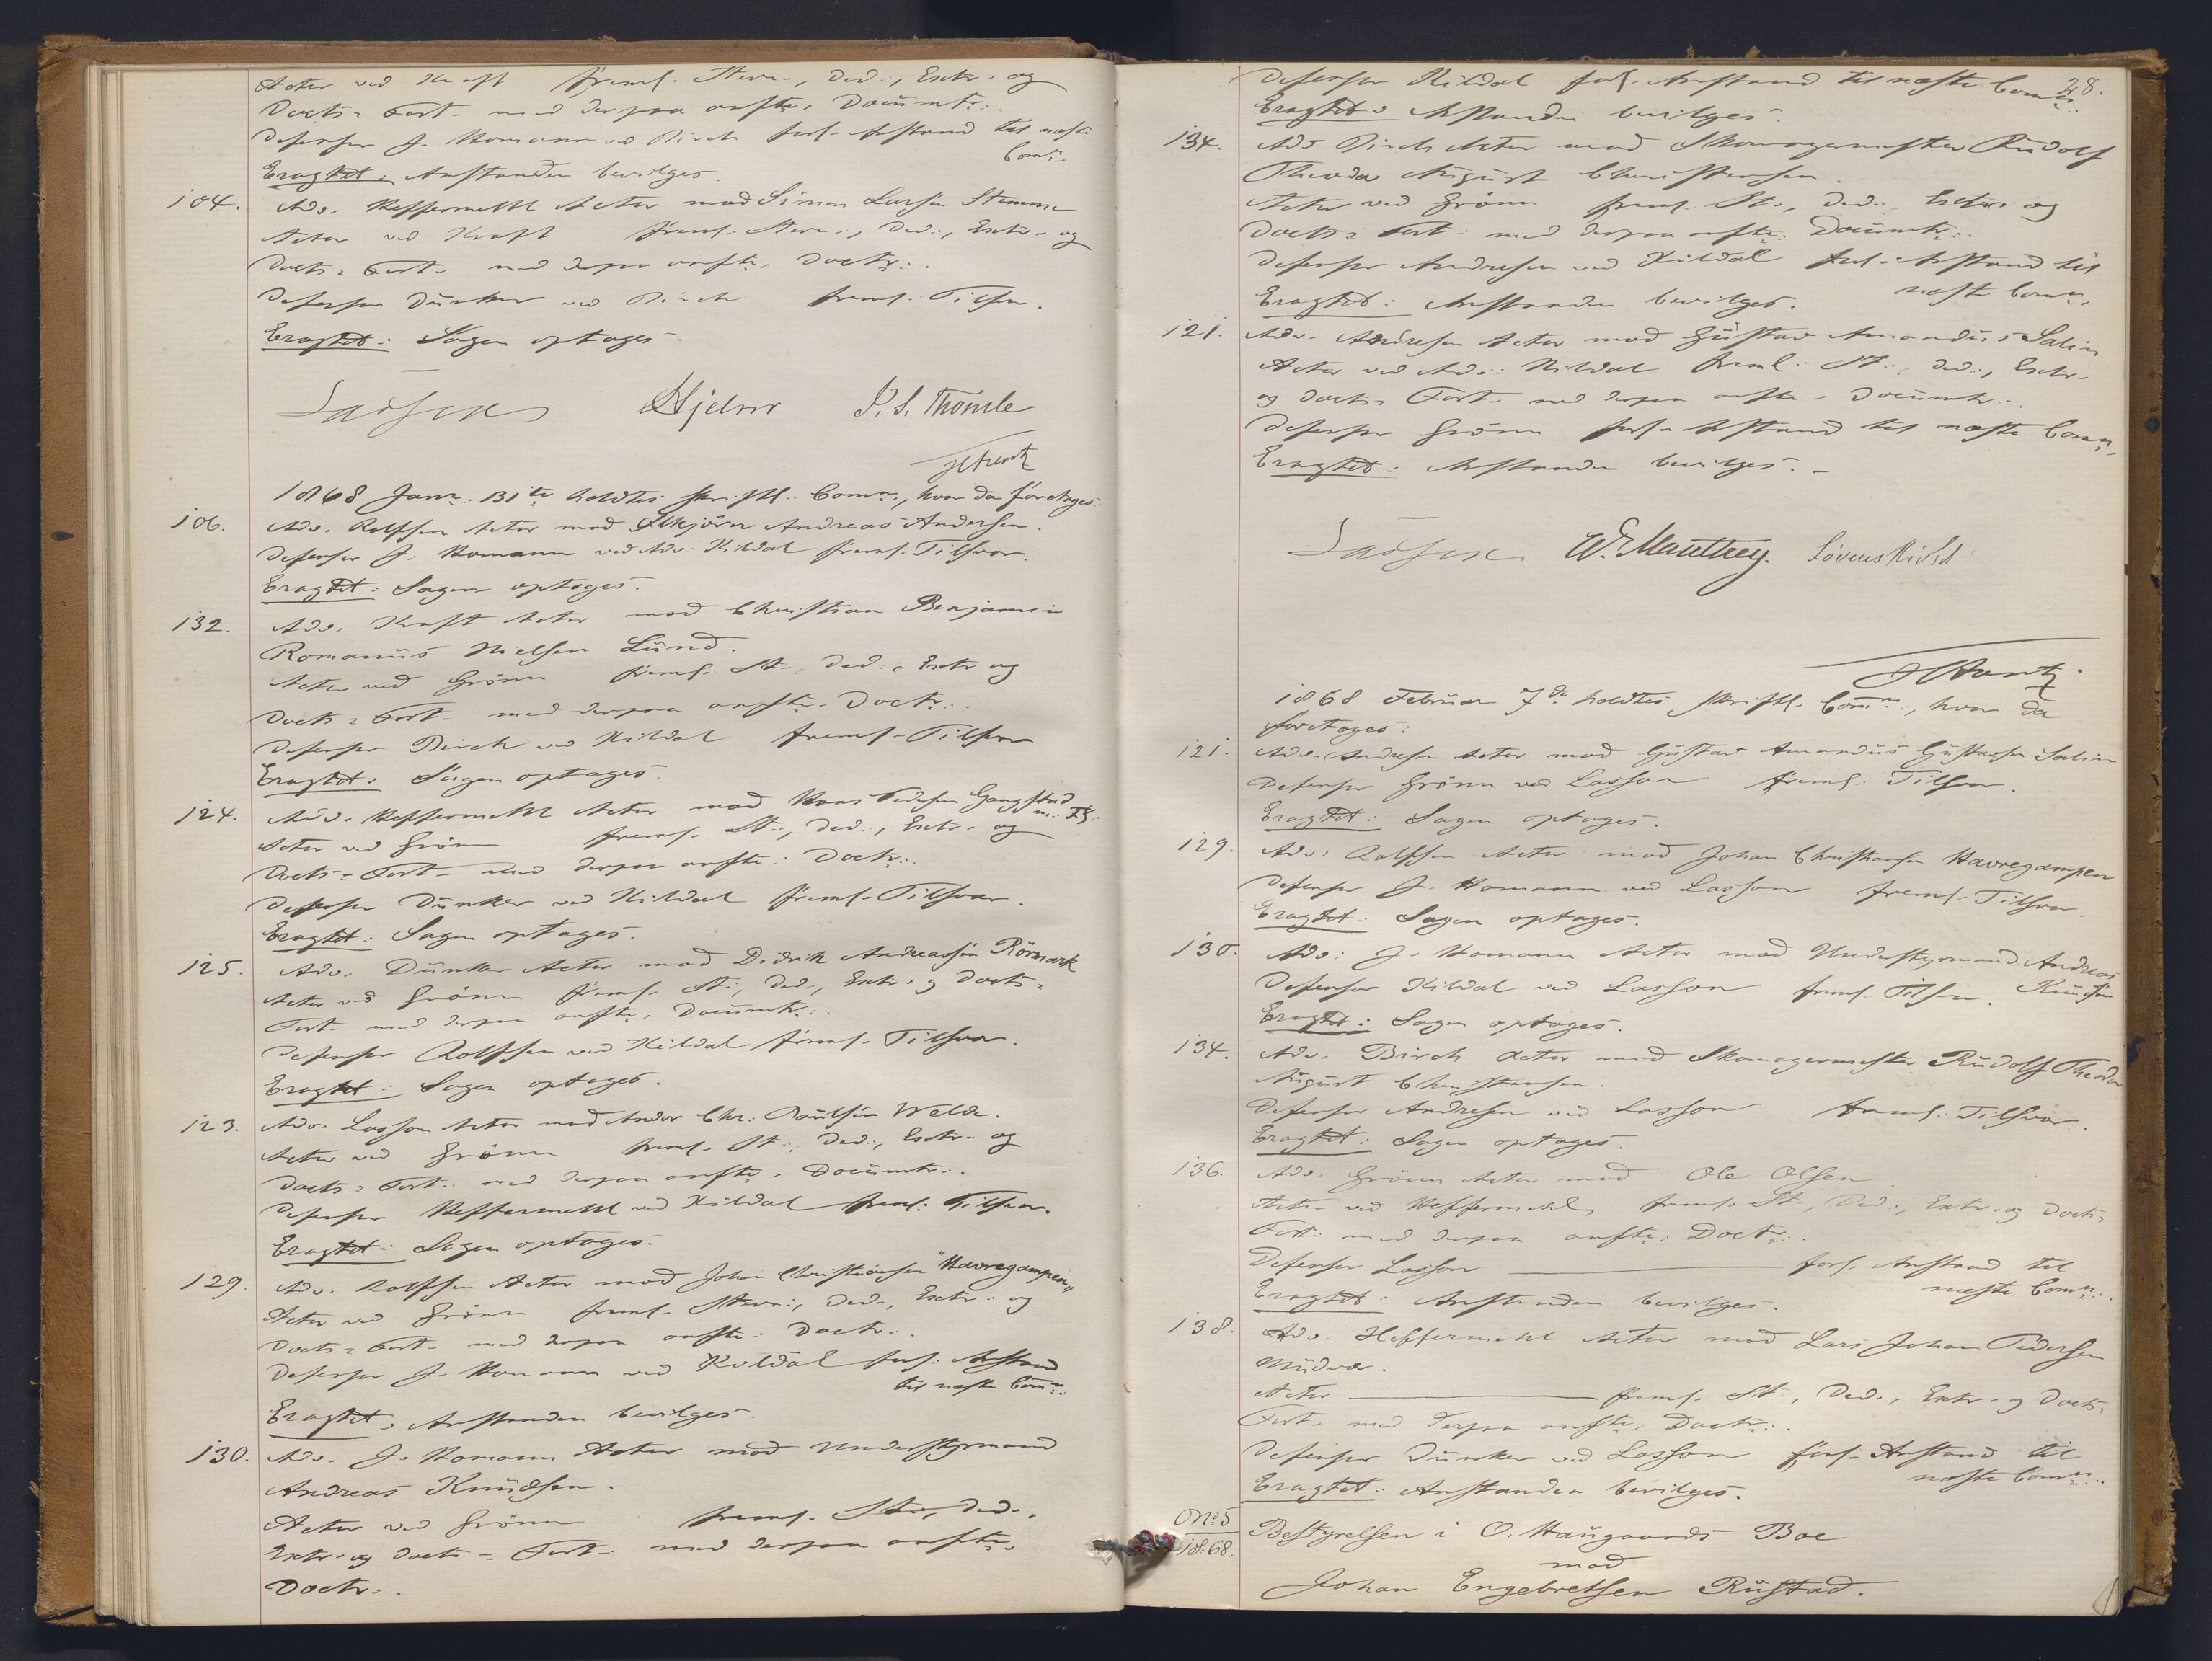 Actor ved Kraft freml. Stevn., Ded:, Extr. og
Docts= Fort. med derpaa anfte. Documtr:.
Defensor J. Homann ved Birch forl. Anstand til næste
Comn:
Eragtet: Anstanden bevilges.
104. Adv. Heffermehl Actor mod Simon Larsen Stemme
Actor ved Kraft freml. Stevn:, Ded:, Extr. og
Docts= Fort. med derpaa anfte. Doctr:.
Defensor Dunker ved Birch freml. Tilsv.
Eragtet: Sagen optages.
Lasson Hjelm P. S. Thomle
1868 Janr. 31te holdtes skriftl. Comn:, hvor da foretages:
106. Adv. Rolfsen Actor mod Andreas Andersen.
Defensor J. Homann ved Adv. Kildal freml. Tilsvar.
Eragtet: Sagen optages.
132. Adv. Kraft Actor mod Christian Benjamin
Romanus Nielsen Lund.
Actor ved Grönn freml. St:, Ded:, Extr og
Docts= Fort. med derpaa anfte. Doctr:.
Defensor Birch ved Kildal freml. Tilsvar
Eragtet: Sagen optages.
124. Adv. Heffermehl Actor mod Hans Pedersen Gangstad
m: Fl:
Actor ved Grönn freml. St:, Ded:, Extr. og
Docts= Fort. med derpaa anfte: Doctr:.
Defensor Dunker ved Kildal freml. Tilsvar.
Eragtet: Sagen optages.
125. Adv. Dunker Actor mod Didrik Andreassen Römark
Actor ved Grönn freml. St:, Ded:, Extr. og Docts=
Fort. med derpaa anfte. Documtr:.
Defensor Rolfsen ved Kildal freml. Tilsvar.
Eragtet: Sagen optages.
123. Adv. Lasson Actor mod Andor Chr. Paulsen Welde.
Actor ved Grönn freml. St:, Ded:, Extr. og
Docts= Fort: med derpaa anfte. Documtr:.
Defensor Heffermehl ved Kildal freml: Tilsvar.
Eragtet: Sagen optages.
129. Adv. Rolfsen Actor mod Johan Christiansen "Havregampen"
Actor ved Grönn freml. Stevn:, Ded:, Extr: og
Docts= Fort. med derpaa anfte: Doctr:.
Defensor J. Homann ved Kildal forl: Anstand
til næste Comn:.
Eragtet: Anstanden bevilges.
130. Adv. J. Homann Actor mod Understyrmand
Andreas Knudsen.
Actor ved Grönn freml. Stv, Ded.,
Extr. og Docts= Fort. med derpaa anfte.
Doctr:.
28.
Defensor Kildal forl. Anstand til næste Comn:
Eragtet: Anstanden bevilges.
134. Adv Birch Actor mod Skomagermester Rudolf
Theodor August Christensen.
Actor ved Grönn freml. St:, Ded:, Extr. og
Docts= Fort: med derpaa anfte: Documtr:.
Defensor Andresen ved Kildal forl. Anstand til
næste Comn.
Eragtet: Anstanden bevilges.
121. Adv. Andresen Actor mod Gustav Amandus Salin
Actor ved Adv: Kildal freml: St:, Ded:, Extr.
og Docts= Fort. med derpaa anfte. Documtr:.
Defensor Grönn forl. Anstand til næste Comn.
Eragtet: Anstanden bevilges.
Lasson W. E. Manthey. Løvenskiold
1868 Februar 7de holdtes skriftl. Comn:, hvor da
foretages:
121. Adv. Andresen Actor mod Gustav Amandus Gustavsen Salin
Defensor Grönn ved Lasson freml. Tilsvar.
Eragtet: Sagen optages.
129. Adv. Rolfsen Actor mod Johan Christiansen Havregampen
Defensor J. Homann ved Lasson freml. Tilsvar.
Eragtet: Sagen optages.
130. Adv: J. Homann Actor mod Understyrmand Andreas
Knudsen
Defensor Kildal ved Lasson freml. Tilsv.
Eragtet: Sagen optages.
134. Adv. Birch Actor mod Skomagermester Rudolf Theodor
August Christensen.
Defensor Andresen ved Lasson freml. Tilsvar.
Eragtet: Sagen optages.
136. Adv. Grönn Actor mod Ole Olsen
Actor ved Heffermehl freml. St:, Ded:, Extr. og Docts=
Fort: med derpaa anfte: Doctr:.
Defensor Lasson forl. Anstand til
næste Comn:.
Eragtet: Anstanden bevilges.
138. Adv: Heffermehl Actor mod Lars Johan Pedersen
Mudvar.
Actor freml. St:, Ded:, Extr. og Docts=
Fort. med derpaa anfte. Doctr:.
Defensor Dunker ved Lasson forl. Anstand til
næste Comn:.
Eragtet: Anstanden bevilges.
No 5
1868. Bestyrelsen i O. Haugaards Boe
mod
Johan Engebretsen Rustad.